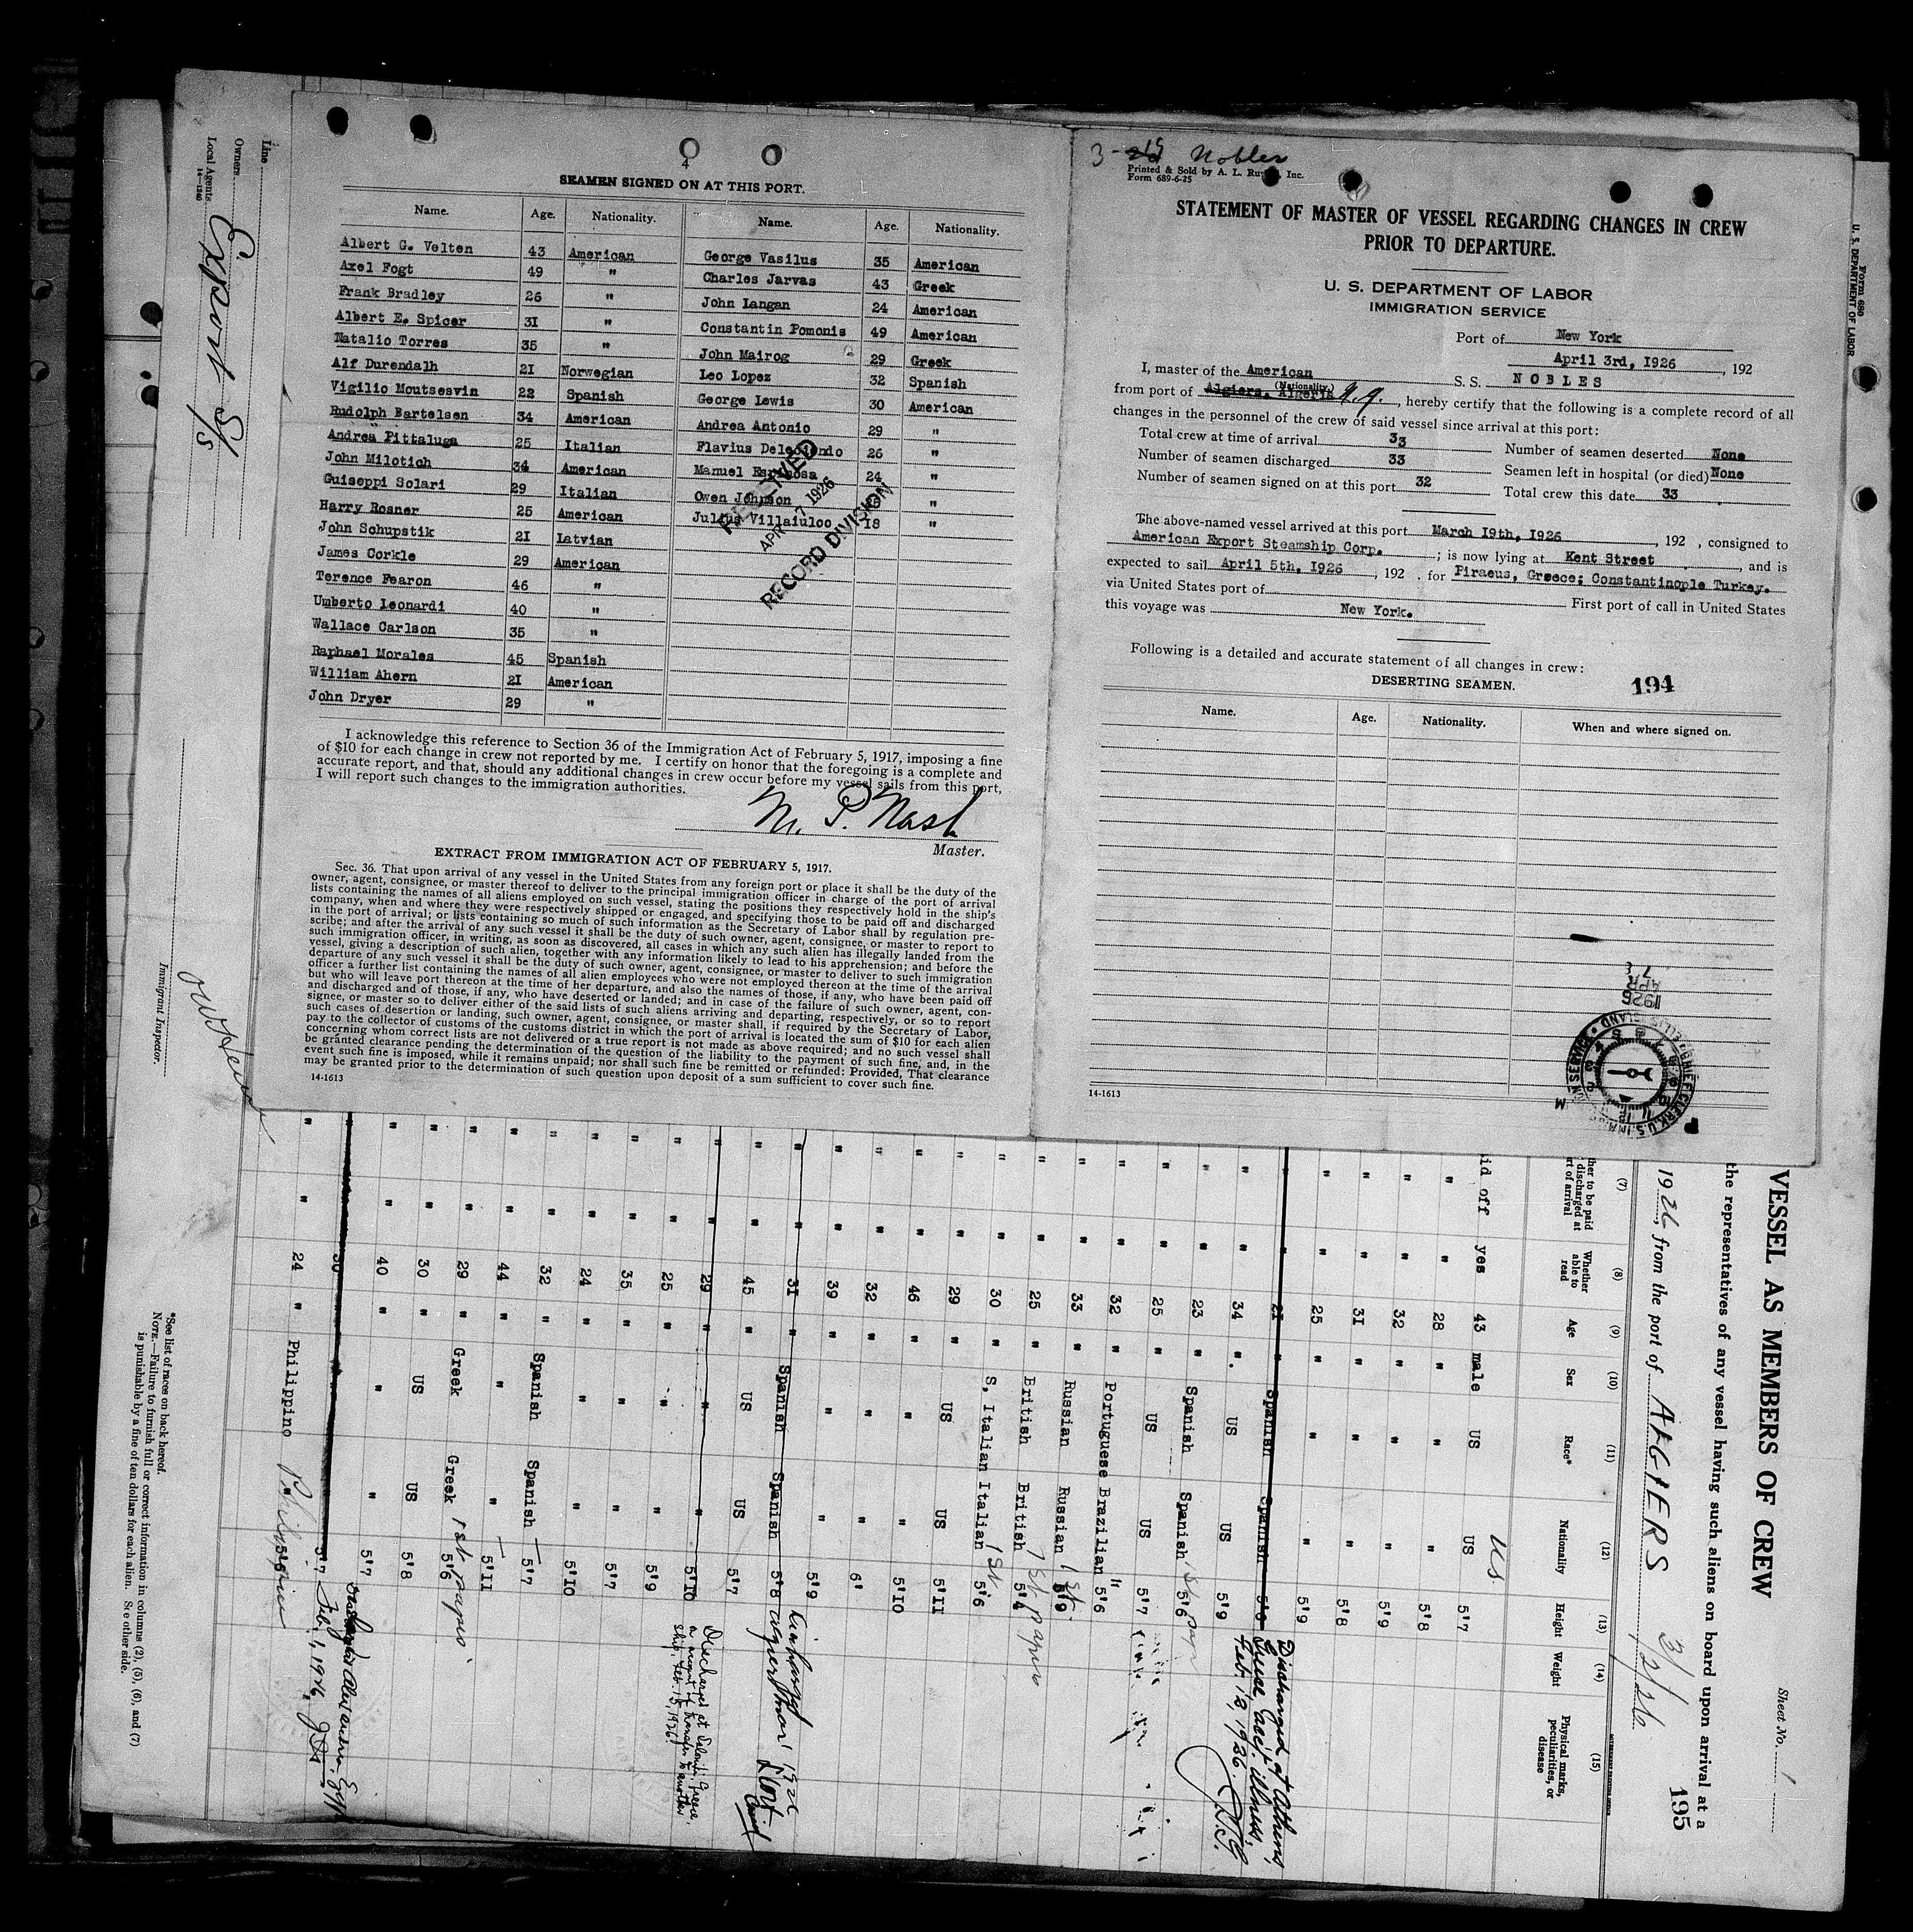 4
SEAMEN SIGNED ON AT THIS PORT.
Name. Age. Nationality. Name. Age. Nationality.
Albert G. Velten 43 American George Vasilus 35 American
Axel Fogt 49 " Charles Jarvas 43 Greek
Frank Bradley 26 " John Langan 24 American
Albert E. Spicer 31 " Constantin Pomonis 49 American
Natalio Torres 35 " John Mairog 29 Greek
Alf Durendalh 21 Norwegian Leo Lopez 32 Spanish
Vigilio Moutsesvin 22 Spanish George Lewis 30 American
Rudolph Bartelsen 34 American Andrea Antonio 29 "
Andrea Pittaluga 25 Italian Flavius 26 "
John Milotich 34 American Manuel Espinosa 24 "
Guiseppi Solari 29 Italian Owen Johnson "
Harry Rosner 25 American Julius Villaiuloo 18 "
John Schupstik 21 Latvian
James Corkle 29 American
Terence Fearon 46 "
Umberto Leonardi 40 "
Wallace Carlson 35 "
Raphael Morales 45 Spanish
William Ahern 21 American
John Dryer 29 "
RECEIVED
APR 7 1926
RECORD DIVISION
I acknowledge this reference to Section 36 of the Immigration Act of February 5, 1917, imposing a fine
of $10 for each change in crew not reported by me. I certify on honor that the foregoing is a complete and
accurate report, and that, should any additional changes in crew occur before my vessel sails from this port,
I will report such changes to the immigration authorities.
M. P. Nash
Master.
EXTRACT FROM IMMIGRATION ACT OF FEBRUARY 5, 1917.
Sec. 36. That upon arrival of any vessel in the United States from any foreign port or place it shall be the duty of the
owner, agent, consignee, or master thereof to deliver to the principal immigration officer in charge of the port of arrival
lists containing the names of all aliens employed on such vessel, stating the positions they respectively hold in the ship's
company, when and where they were respectively shipped or engaged, and specifying those to be paid off and discharged
in the port of arrival; or lists containing so much of such information as the Secretary of Labor shall by regulation pre-
scribe; and after the arrival of any such vessel it shall be the duty of such owner, agent, consignee, or master to report to
such immigration officer, in writing, as soon as discovered, all cases in which any such alien has illegally landed from the
vessel, giving a description of such alien, together with any information likely to lead to his apprehension; and before the
departure of any such vessel it shall be the duty of such owner, agent, consignee, or master to deliver to such immigration
officer a further list containing the names of all alien employees who were not employed thereon at the time of the arrival
but who will leave port thereon at the time of her departure, and also the names of those, if any, who have been paid off
and discharged and of those, if any, who have deserted or landed; and in case of the failure of such owner, agent, con-
signee, or master so to deliver either of the said lists of such aliens arriving and departing, respectively, or so to report
such cases of desertion or landing, such owner, agent, consignee, or master shall, if required by the Secretary of Labor,
pay to the collector of customs of the customs district in which the port of arrival is located the sum of $10 for each alien
concerning whom correct lists are not delivered or a true report is not made as above required; and no such vessel shall
be granted clearance pending the determination of the question of the liability to the payment of such fine, and, in the
event such fine is imposed, while it remains unpaid; nor shall such fine be remitted or refunded: Provided, That clearance
may be granted prior to the determination of such question upon deposit of a sum sufficient to cover such fine.
14-1613
3-19 Nobles
Printed & Sold by A. L. Inc.
Form 689-6-25
STATEMENT OF MASTER OF VESSEL REGARDING CHANGES IN CREW
PRIOR TO DEPARTURE.
U. S. DEPARTMENT OF LABOR
IMMIGRATION SERVICE
Port of New York
April 3rd, 1926, 192
I, master of the American S. S. NOBLES
(Nationality.)
from port of Algiers, Algeria N.Y., hereby certify that the following is a complete record of all
changes in the personnel of the crew of said vessel since arrival at this port:
Total crew at time of arrival 33 Number of seamen deserted None
Number of seamen discharged 33 Seamen left in hospital (or died) None
Number of seamen signed on at this port 32 Total crew this date 33
The above-named vessel arrived at this port March 19th, 1926, 192 , consigned to
American Export Steamship Corp. ; is now lying at Kent Street, and is
expected to sail April 5th, 1926, 192 . for Piraeus, Greece; Constantinople Turkey.
via United States port of First port of call in United States
this voyage was New York.
Following is a detailed and accurate statement of all changes in crew:
DESERTING SEAMEN. 194
Name. Age. Nationality. When and where signed on.
1926
APR
7
CHIEF CLERK, U.S. IMMIGRATION SERVICE ELLIS ISLAND
14-1613
Form 680
U. S. DEPARTMENT OF LABOR
Line
Owners
Local Agents Export S/S
14-1240
Immigrant Inspector.
VESSEL AS MEMBERS OF CREW
Sheet No. 1
the representatives of any vessel having such aliens on board upon arrival at a
195
1926, from the port of ALGIERS 3/2/26
(7) (8) (9) (10) (11) (12) (13) (14) (15)
ther to be paid discharged at rt of arrival
Whether able to read
Age
Sex
Race*
Nationality
Height
Weight
Physical marks, peculiarities, or disease
US
id off yes 43 male US US 5'7
" " 28 " " " 5'8
" " 32 " " " 5'9
" " 31 " " " 5'8
" " 25 " " " 5'9
21 " Spanish Spanish Discharged at Athens, Greece, acct. illness, Feb. 12, 1926.
" " 34 " US US 5'9
" " 23 " Spanish Spanish 1st pap 5'6
" " 25 " US US 5'7
" " 32 " Portuguese Brazilian 5'6
" " 33 " Russian Russian 1st 5'9
" " 25 " British British 1st papers 5'4
" " 30 " S, Italian Italian 1st 5'6
" " 29 " US US 5'11
" " 46 " " " 5'10
" " 32 " " " 6'
" " 39 " " " 5'9
" " 31 " Spanish Spanish 5'8
" " 45 " US US 5'7
" " 29 " " " 5'10 Discharged at Greece, transfer to another ship, Feb. 15, 1926
" " 25 " " " 5'9
" " 35 " " " 5'7
" " 24 " " " 5'10
" " 32 " Spanish Spanish 5'7
" " 44 " " " 5'11
" " 29 " Greek Greek 1st papers 5'6
" " 30 " US US 5'8
" " 40 " " " 5'7
5'7 Feb. 1, 1926
" " 24 " Philippino 5'6
*See list of races on back hereof.
NOTE.—Failure to furnish full or correct information in columns (2), (5), (6), and (7)
is punishable by a fine of ten dollars for each alien. See other side.